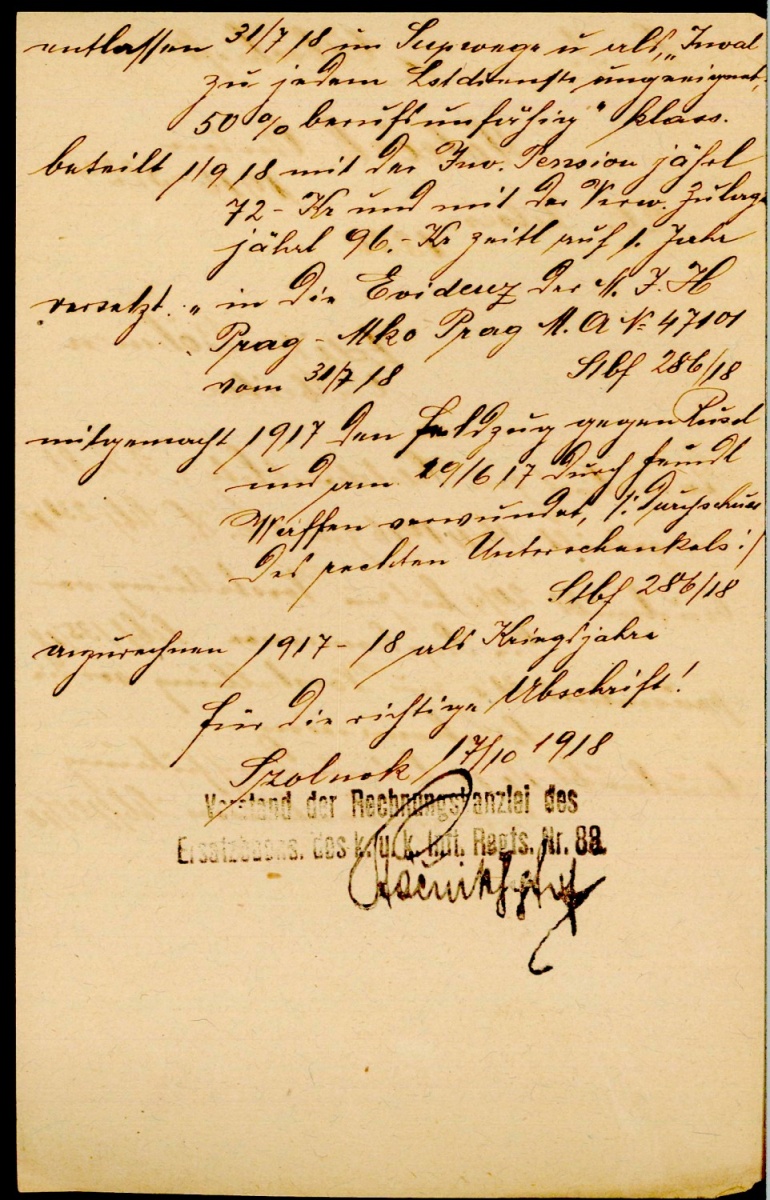 entlassen 31/7 18 im Supwege u als „Inval
zu jedem Lstdienste ungeeignet,
50 % berufsunfähig" klass.
beteilt 1/9 18 mit der Inv. Pension jährl
72 - Kr und mit der Verw. Zulage
jährl 96.- Kr zeitl auf 1. Jahr
versetzt „ in die Evidenz der K. I. H
Prag - Mko Prag M. A № 47101
vom 31/7 18 Stbf 286/18
mitgemacht 1917 den Feldzug gegen Rusl
und am 29/6 17 durch feindl
Waffen verwundet, /: Durchschuss
des rechten Unterschenkels :/
Stbf 286/18
anzurechnen 1917 - 18 als Kriegsjahre
für die richtige Abschrift!
Szolnok 17/10 1918
Vorstand der Rechnungskanzlei des
Ersatzbaons. des k. u. k. Inft. Regts. Nr. 88.